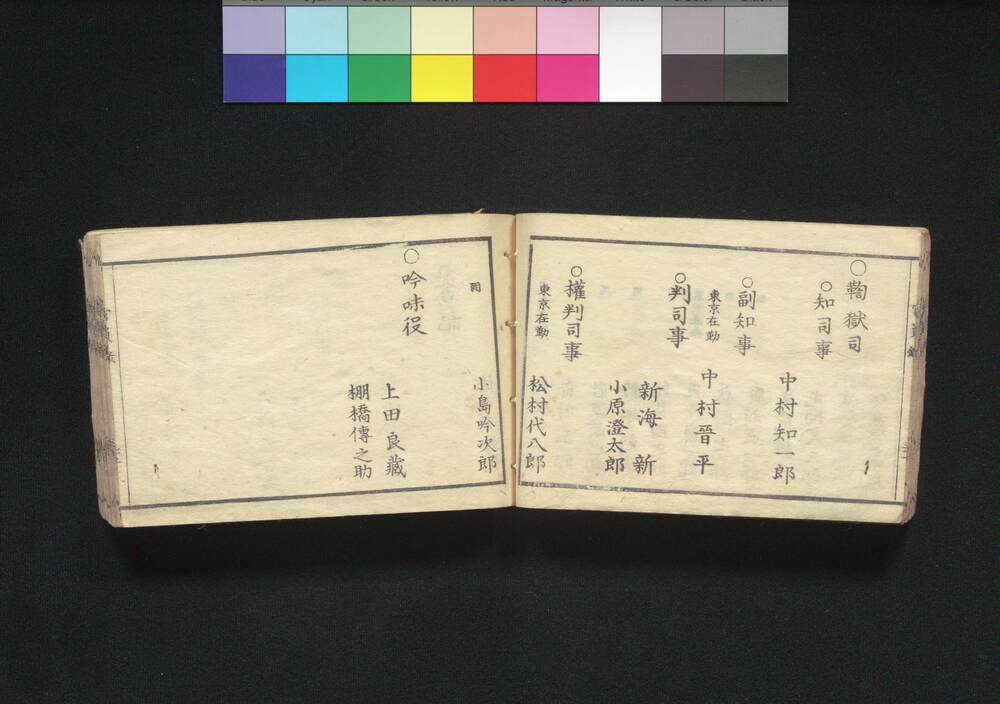 ○鞫獄司
○知司事
中村知一郎
○副知事
東京在勤
中村晉平
○判司事
新海新
小原澄太郎
○權判司事
東京在勤
松村代八郎
同
小島吟次郎
○吟味役
上田良藏
棚橋傳之助